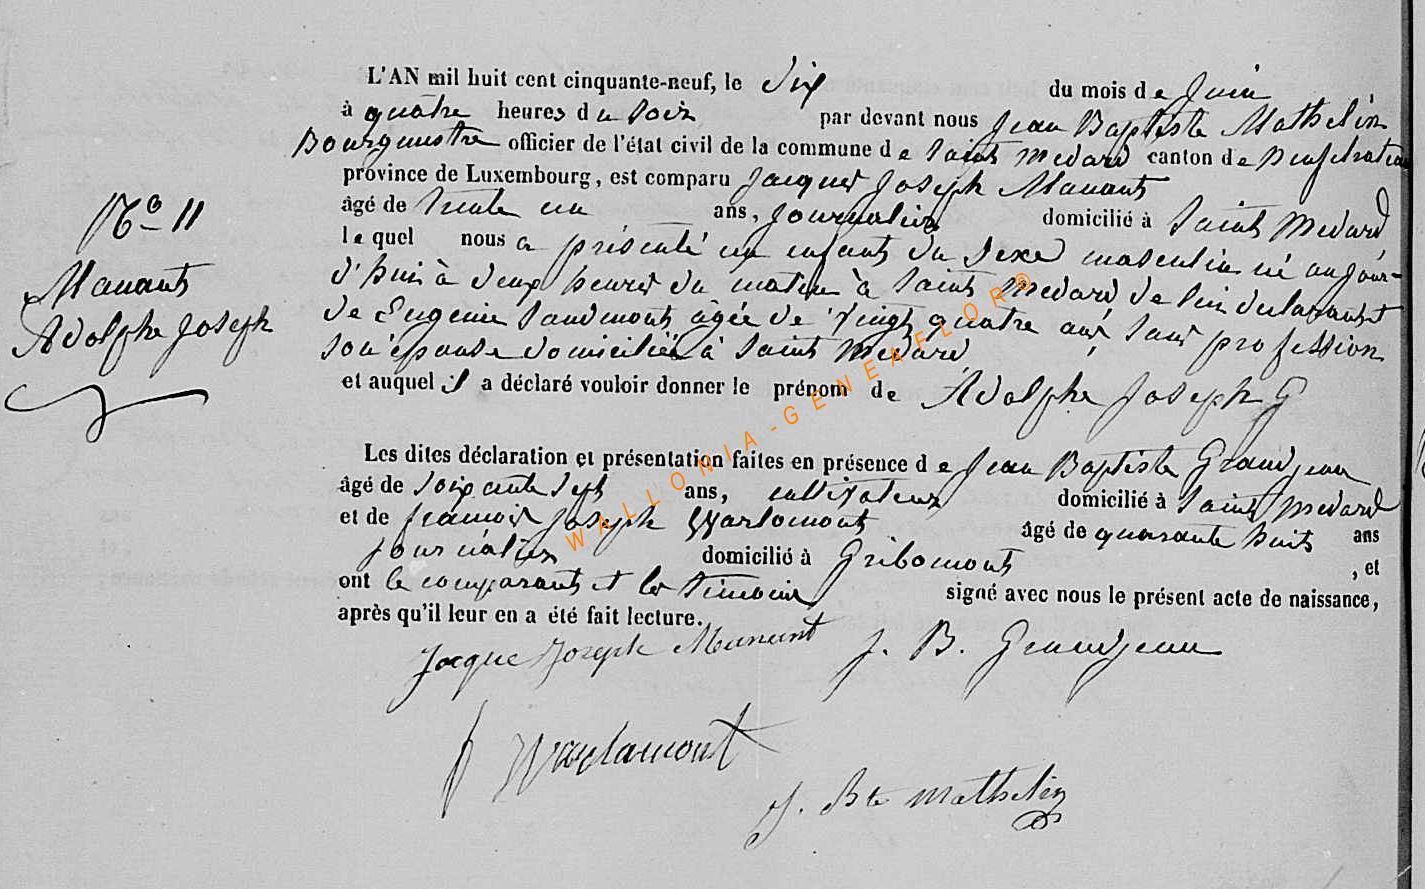 L'AN mil huit cent cinquante-neuf, le six du mois de Juin
à quatre heures du soir par devant nous Jean Baptiste Mathelin
Bourgmestre officier de l'état civil de la commune de Saint Medard canton de Neufchateau
province de Luxembourg, est comparu Jacques Joseph Manant
âgé de trente un ans, journalier domicilié à Saint Medard
lequel nous a présenté un enfant du sexe masculin né aujour-
d'hui à deux heures du matin à Saint Medard de lui déclarant et
de Eugenie agée de vingt quatre ans sans profession
son épouse domiciliée à Saint Medard
et auquel il a déclaré vouloir donner le prénom de Adolphe Joseph
Les dites déclaration et présentation faites en présence de Jean Baptiste Grandjean
âgé de soixante sept ans, cultivateur domicilié à Saint Medard
et de francois Joseph Warlomont âgé de quarante huit ans
journalier domicilié à Gribomont , et
ont le comparant et les témoins signé avec nous le présent acte de naissance,
après qu'il leur en a été fait lecture.
No 11
Manant
Adolphe Joseph
Jacque Joseph Manant J. B. Grandjean
f Warlamont
J. Bte Mathelin
WALLONIA-GENEAFLOR®